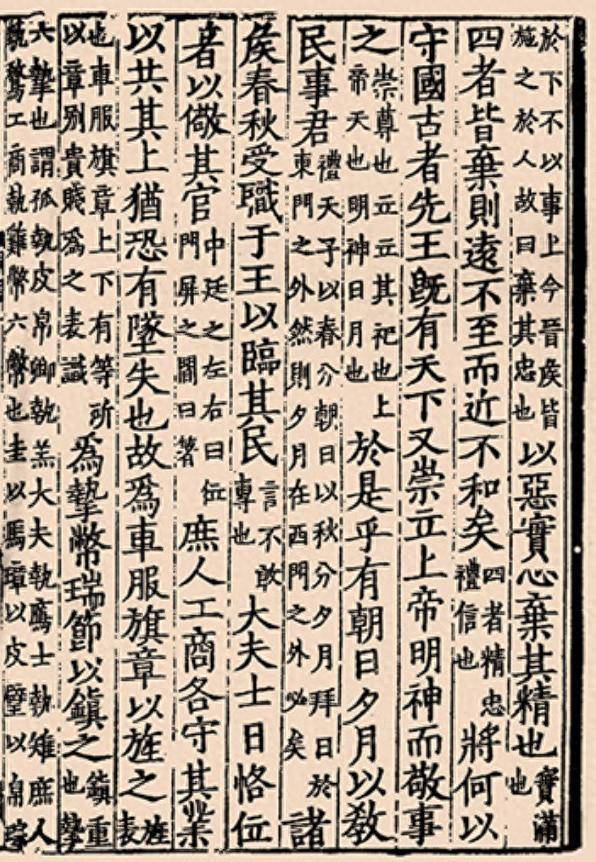 於下不以事上今晉侯皆施之於人故曰棄其忠也以惡實心棄其精也實滿也
四者皆棄則遠不至而近不和矣四者精忠禮信也將何以
守國古者先王既有天下又崇立上帝明神而敬事
之崇尊也立立其祀也上帝天也明神日月也於是乎有朝日夕月以教
民事君禮天子以春分朝日以秋分夕月拜日於東門之外然則夕月在西門之外必矣諸
侯春秋受職于王以臨其民言不敢專也大夫士日恪位
者以儆其官中廷之左右曰位門屏之間曰著庶人工商各守其業
以共其上猶恐有墜失也故爲車服旗章以旌之旌表
也車服旗章上下有等所以章別貴賤爲之表識爲摯幣瑞節以鎮之鎮重也摯
六摯也謂孤執皮帛卿執羔大夫執鴈士執雉庶人執鶩工商執雞幣六幣也圭以馬璋以皮璧以帛琮